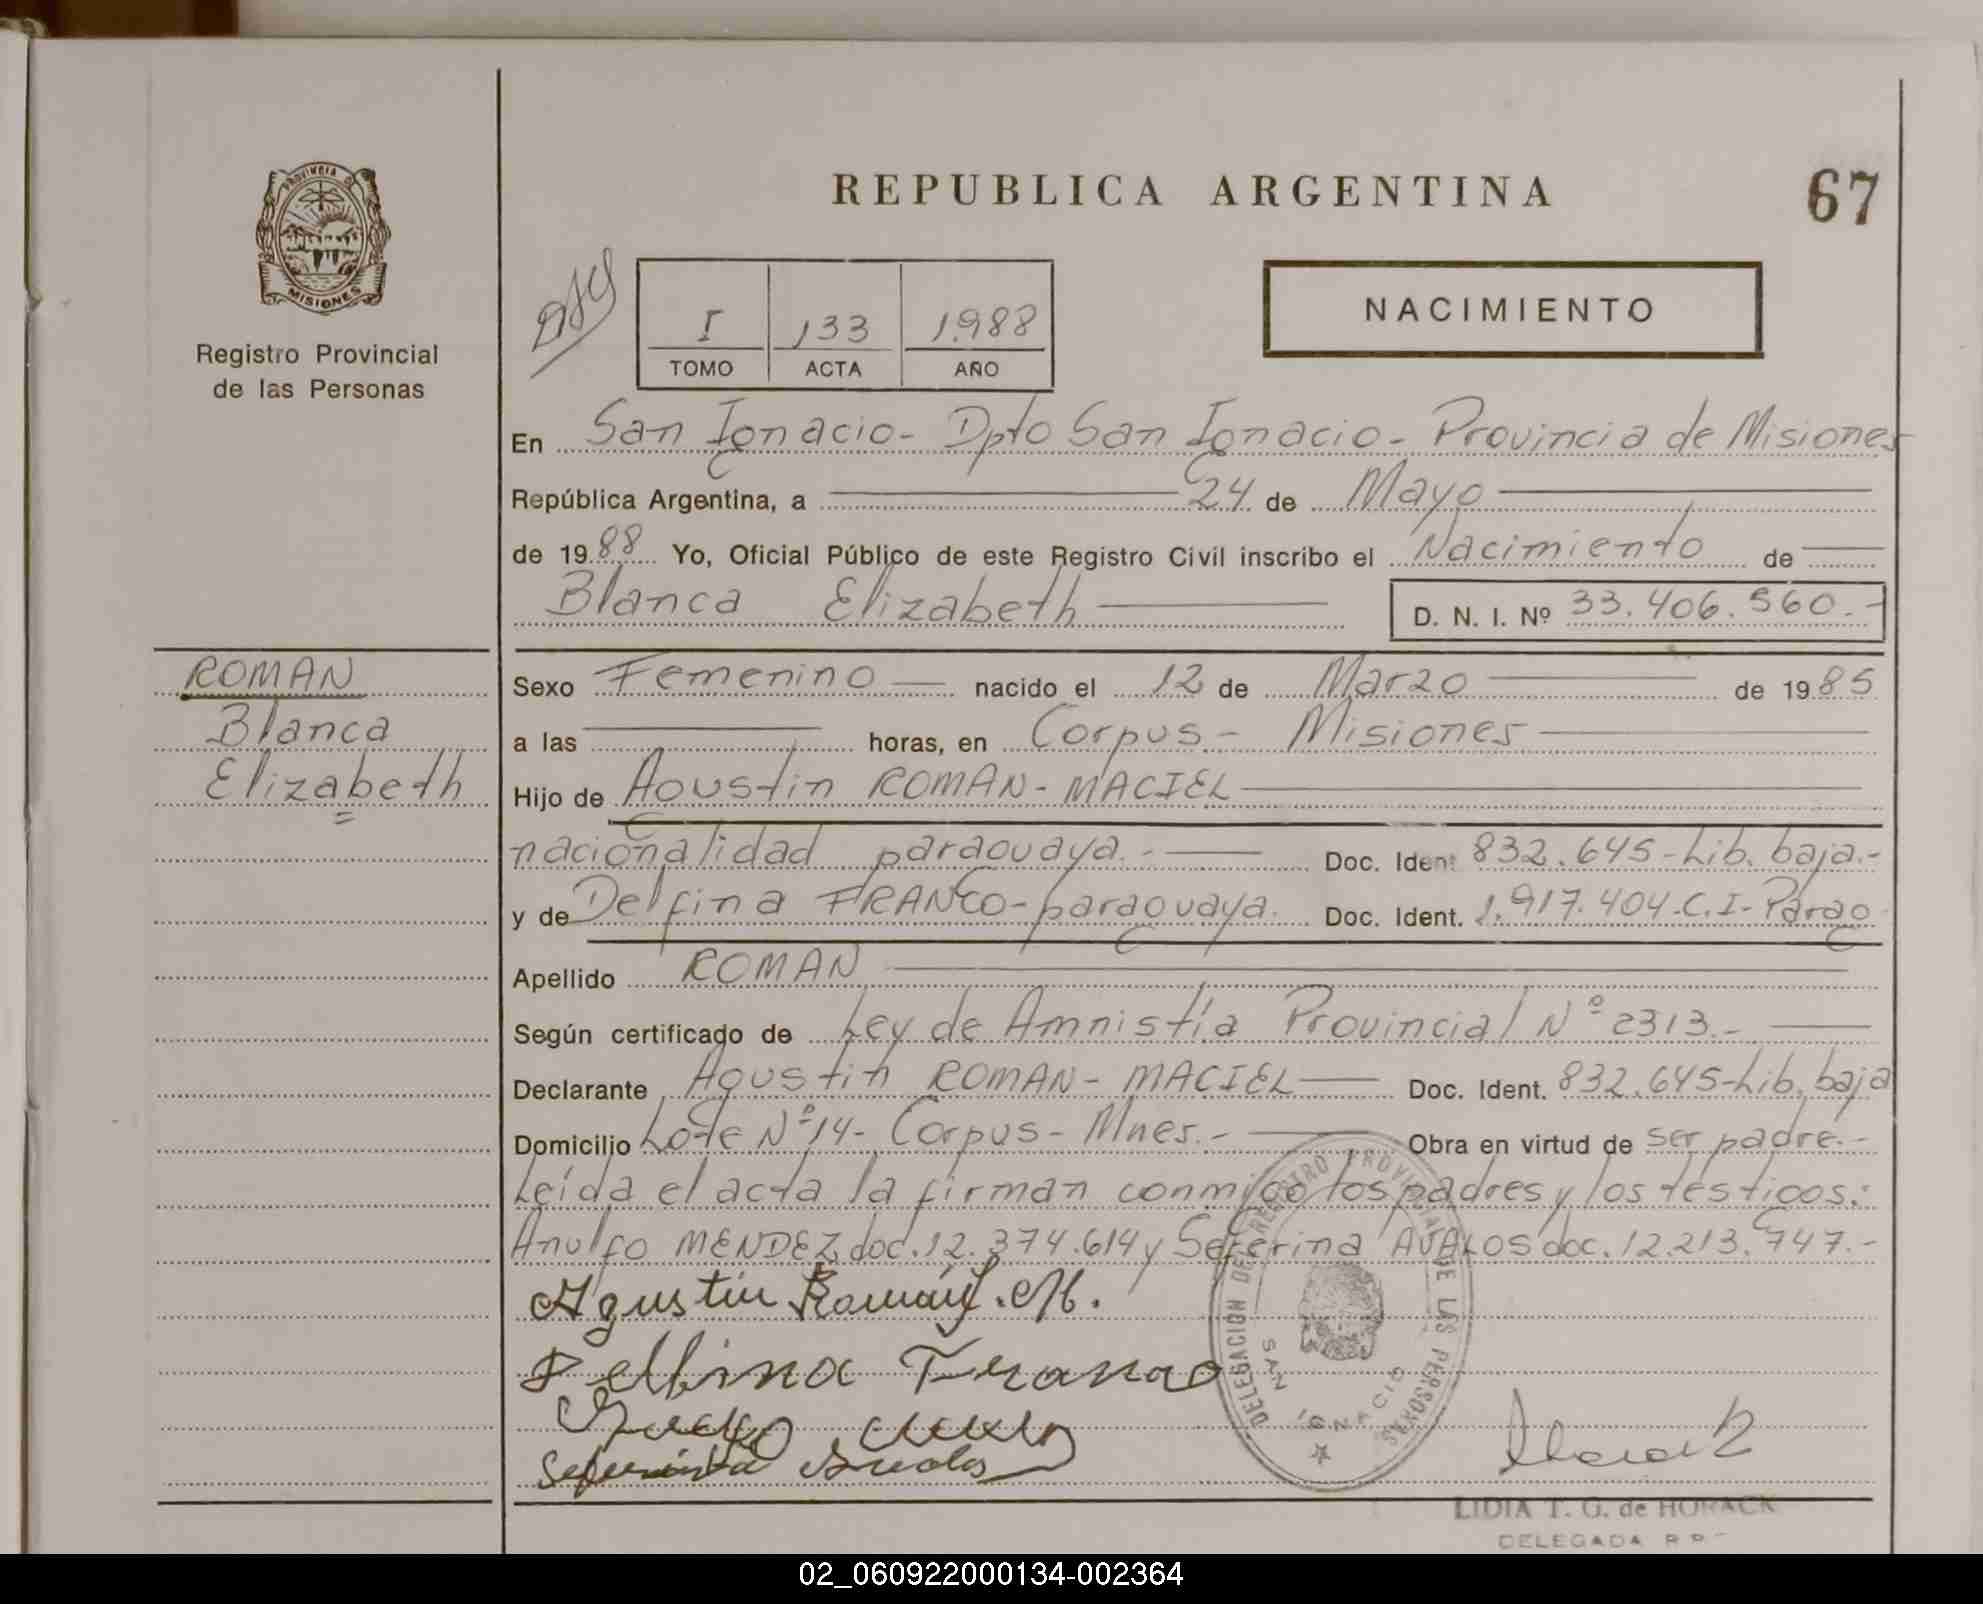 PROVINCIA DE
MISIONES
Registro Provincial
de las Personas
REPUBLICA ARGENTINA
67
I 133 1.988
TOMO ACTA AÑO
NACIMIENTO
En San Ignacio- Dpto San Ignacio- Provincia de Misiones
República Argentina, a 24 de Mayo
de 1988 Yo, Oficial Público de este Registro Civil inscribo el Nacimiento de
Blanca Elizabeth D. N. I. Nº 33.406.560.-
ROMAN
Blanca
Elizabeth
Sexo Femenino nacido el 12 de Marzo de 1985
a las horas, en Corpus.- Misiones
Hijo de Agustin ROMAN- MACIEL
nacionalidad paraguaya.- Doc. Ident 832.645-Lib. baja.-
y de Delfina FRANCO-paraguaya. Doc. Ident. 1.917.404-C.I-Parag
Apellido ROMAN
Según certificado de Ley de Amnistía Provincial Nº 2313.-
Declarante Agustin ROMAN- MACIEL Doc. Ident. 832.645-Lib. baja
Domicilio Lote Nº 14- Corpus- Mnes.- Obra en virtud de ser padre.-
Leída el acta la firman conmigo los padres y los testigos:
Anulfo MENDEZ doc. 12.374.614 y Seferina AVALOS doc. 12.213.747.-
Agustin Román. M.
Delfina Franco
Seferina Avalos
DELEGACION DEL REGISTRO PROVINCIAL DE LAS PERSONAS
SAN IGNACIO
LIDIA T. G. de HORACK
DELEGADA R P
02_060922000134-002364